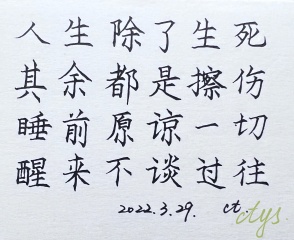 人生除了生死
其余都是擦伤
睡前原谅一切
醒来不谈过往
2022.3.29. ct
ctys.